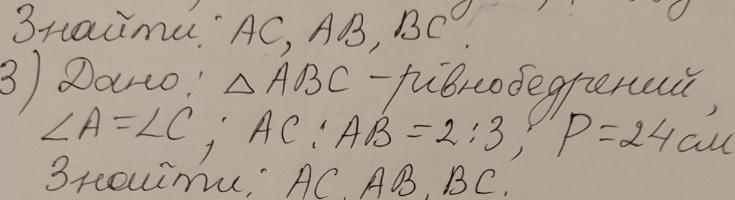 Знайти: AC, AB, BC.
3) Дано: △ ABC – рівнобедрений,
∠A=∠C; AC:AB=2:3; P=24см
Знайти: AC, AB, BC.